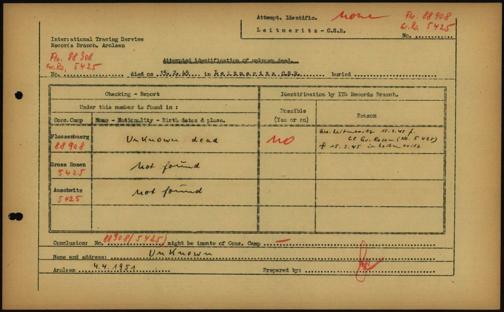 Attempt. Identific. none
Leitmeritz - C.S.R.
Flo. 88908
G.R. 5425
No.
International Tracing Service
Records Branch, Arolsen
Flo. 88908
G.R. 5425
Attempted identification of unknown dead.
No. died on 15.3.45 in Leitmeritz C.S.R. buried
Checking - Report
Identification by ITS Records Branch.
Under this number is found in :
Possible
(Yes or no)
Reason
Conc.Camp Name - Nationality - Birth dates & place.
Flossenburg
88908
Unknown dead
no
Gross Rosen
5425
not found
Auschwitz
5425
not found
Conclusion: No. 88908 (5425) might be inmate of Conc. Camp —
Name and address: Unknown
Arolsen 4.4.1951 Prepared by: